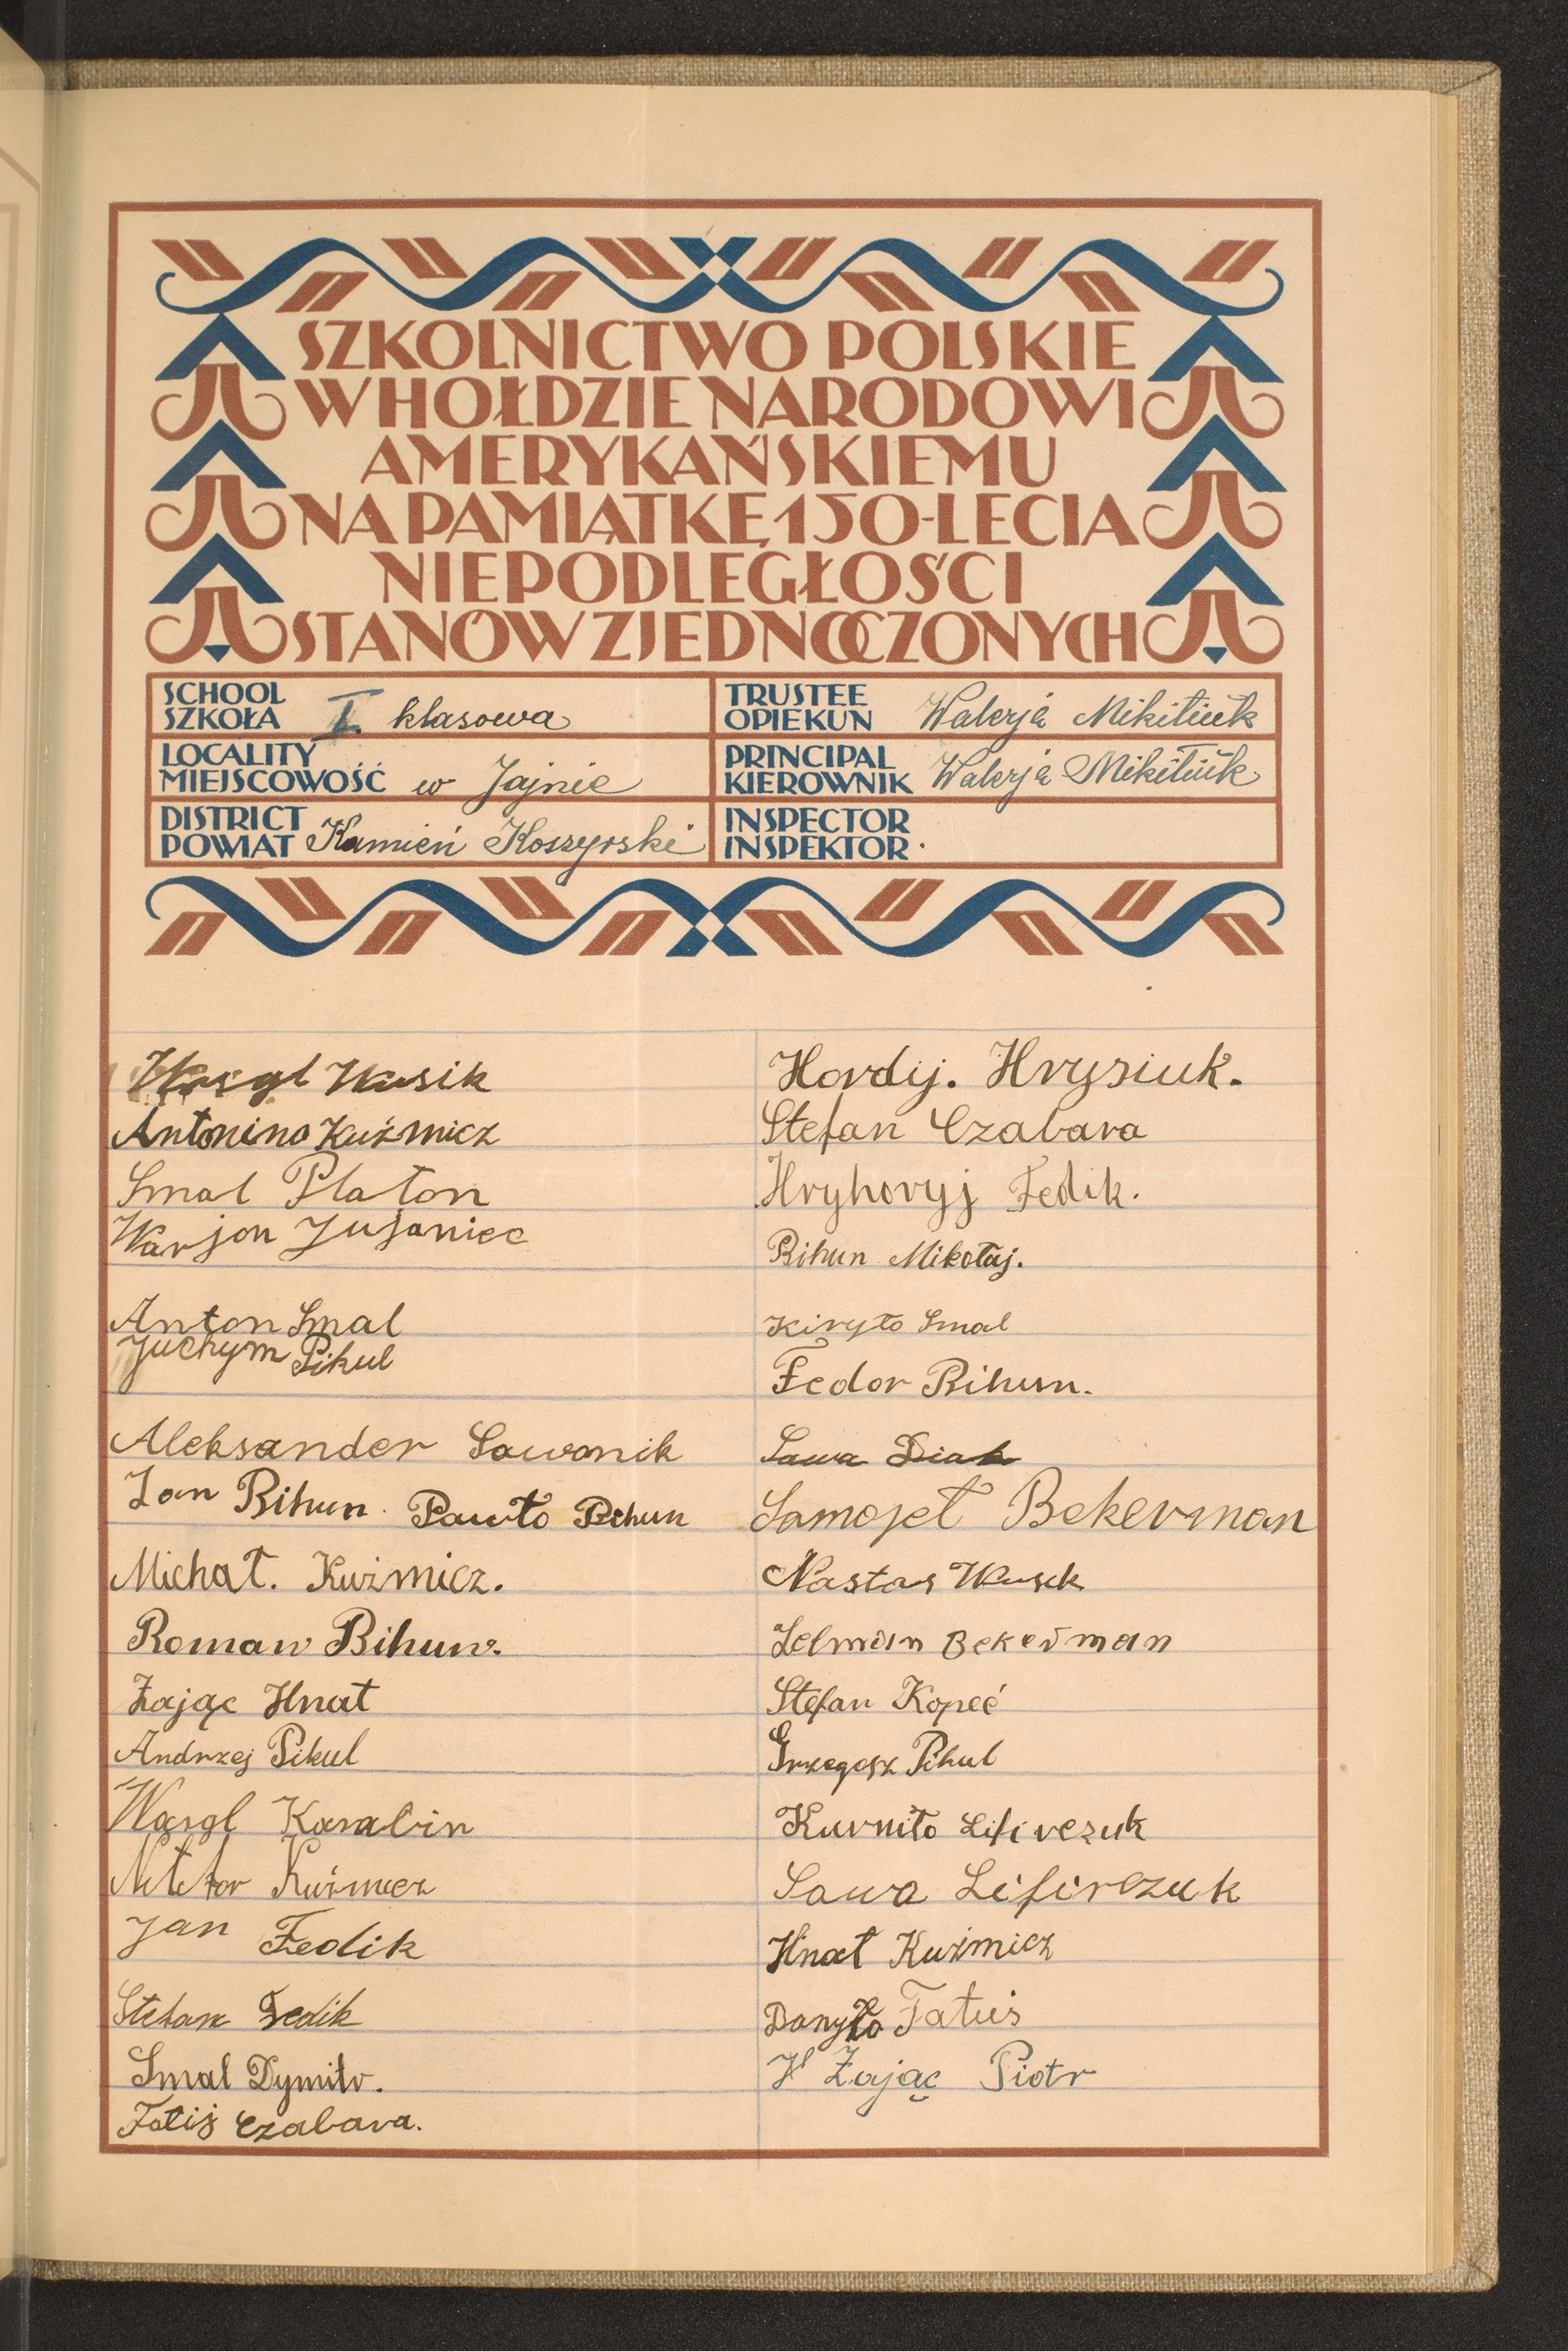 SZKOLNICTWO POLSKIE
W HOŁDZIE NARODOWI
AMERYKAŃSKIEMU
NA PAMIĄTKĘ 150-LECIA
NIEPODLEGŁOŚCI
STANÓW ZJEDNOCZONYCH
SCHOOL
SZKOŁA I klasowa
TRUSTEE
OPIEKUN Walerja Mikitiuk
LOCALITY
MIEJSCOWOŚĆ w Jajnie
PRINCIPAL
KIEROWNIK Walerja Mikitiuk
DISTRICT
POWIAT Kamień Koszyrski
INSPECTOR
INSPEKTOR
Wasyl Wusik
Antonina Kuźmicz
Smal Platon
Warjon
Anton Smal
Juchym Pikul
Aleksander Sawonik
Jan Bihun. Pawło Bihun
Michał. Kuźmicz.
Roman Bihun.
Zając Hnat
Andrzej Pikul
Wasyl Karabin
Kuźmicz
Jan Fedik
Stefan Fedik
Smal Dymitr.
Fotij Czabara.
Hordij. Hrysiuk.
Stefan Czabara
Hryhoryj Fedik.
Bihun Mikołaj.
Kiryło Smal
Fedor Bihun.
Sawa Diak
Samojeł Bekerman
Nastas Wusik
Zelman Bekerman
Stefan Kopeć
Grzegosz Pikul
Kurniło Lifirczuk
Sawa Lifirczuk
Hnat Kuźmicz
Danyło Fatus
Zając Piotr